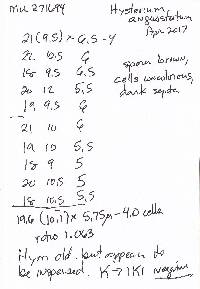 MU 271694
Hysterium
angustatum
Apr 2017
21 (9.5) x 6.5 - 4
22 10.5 6
18 9.5 6.5
20 12 5.5
19 9.5 6
21 10 6
19 10 5.5
18 9 5
20 10.5 5
18 10.5 5.5
spores brown,
cells uncolorous,
dark septa
19.6 (10.1) x 5.75µ - 4.0 cells
ratio 1.063
Hym old, but appears to
be inspersed. K → IKI negative